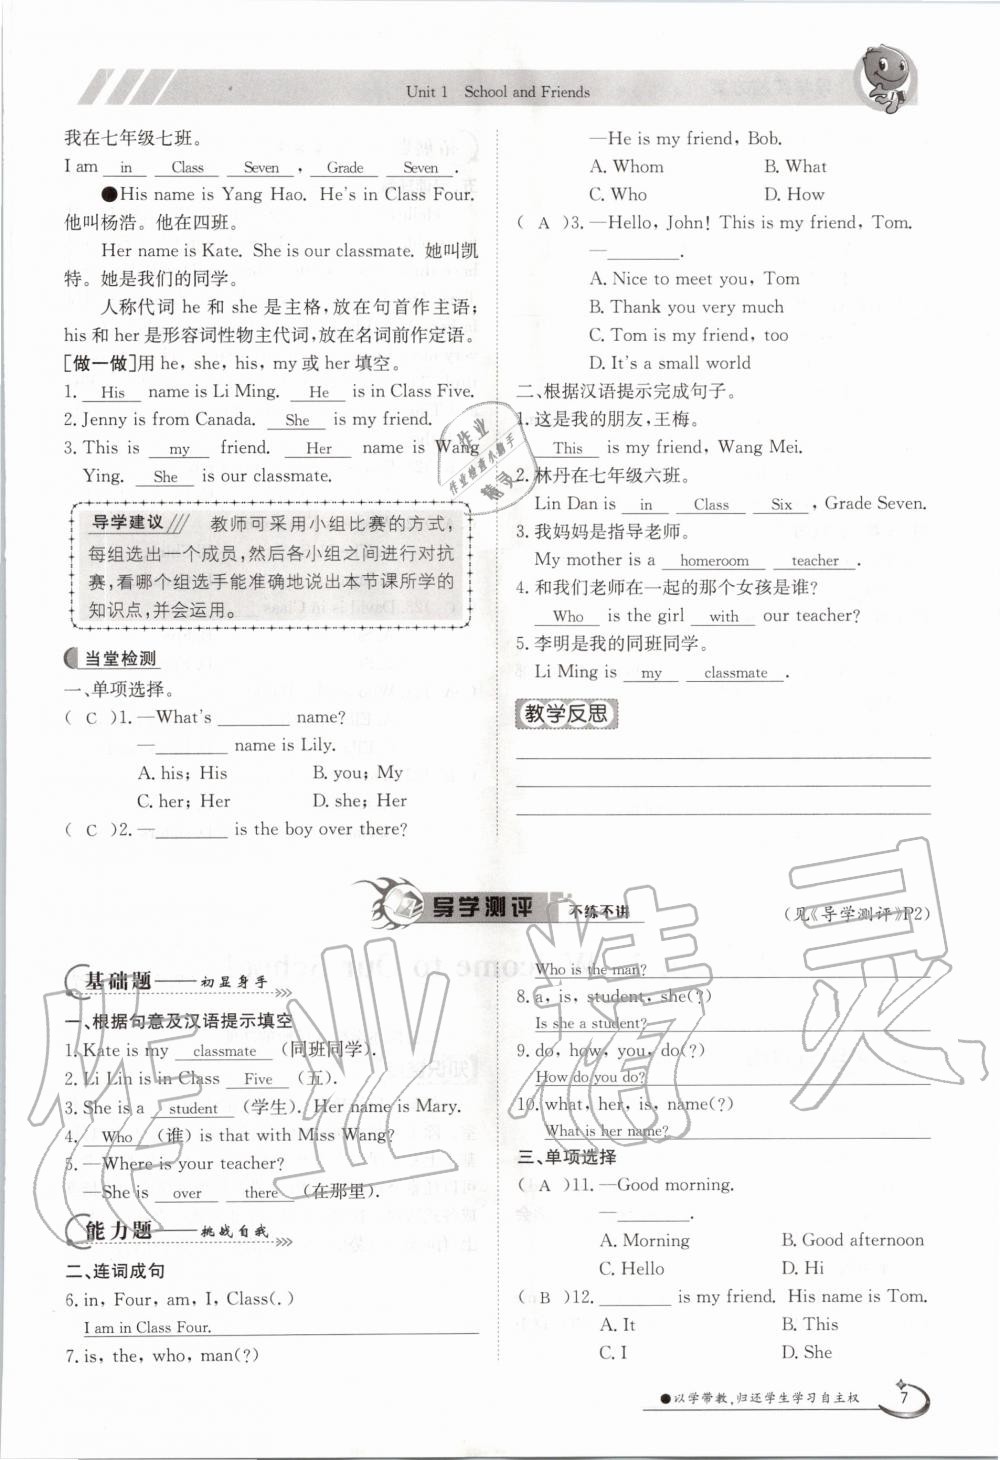 Unit 1 School and Friends
我在七年级七班。
I am in Class Seven, Grade Seven.
●His name is Yang Hao. He's in Class Four.
他叫杨浩。他在四班。
Her name is Kate. She is our classmate. 她叫凯
特。她是我们的同学。
人称代词 he 和 she 是主格,放在句首作主语;
his 和 her 是形容词性物主代词,放在名词前作定语。
[做一做]用 he, she, his, my 或 her 填空。
1. His name is Li Ming. He is in Class Five.
2. Jenny is from Canada. She is my friend.
3. This is my friend. Her name is Wang
Ying. She is our classmate.
导学建议 教师可采用小组比赛的方式,
每组选出一个成员,然后各小组之间进行对抗
赛,看哪个组选手能准确地说出本节课所学的
知识点,并会运用。
当堂检测
一、单项选择。
( C )1. —What's ________ name?
—________ name is Lily.
A. his; His B. you; My
C. her; Her D. she; Her
( C )2. —________ is the boy over there?
—He is my friend, Bob.
A. Whom B. What
C. Who D. How
( A )3. —Hello, John! This is my friend, Tom.
—________.
A. Nice to meet you, Tom
B. Thank you very much
C. Tom is my friend, too
D. It's a small world
二、根据汉语提示完成句子。
1. 这是我的朋友,王梅。
This is my friend, Wang Mei.
2. 林丹在七年级六班。
Lin Dan is in Class Six, Grade Seven.
3. 我妈妈是指导老师。
My mother is a homeroom teacher.
4. 和我们老师在一起的那个女孩是谁?
Who is the girl with our teacher?
5. 李明是我的同班同学。
Li Ming is my classmate.
教学反思
导学测评 不练不讲 (见《导学测评》P2)
基础题——初显身手
一、根据句意及汉语提示填空
1. Kate is my classmate (同班同学).
2. Li Lin is in Class Five (五).
3. She is a student (学生). Her name is Mary.
4. Who (谁) is that with Miss Wang?
5. —Where is your teacher?
—She is over there (在那里).
能力题——挑战自我
二、连词成句
6. in, Four, am, I, Class(.)
I am in Class Four.
7. is, the, who, man(?)
Who is the man?
8. a, is, student, she(?)
Is she a student?
9. do, how, you, do(?)
How do you do?
10. what, her, is, name(?)
What is her name?
三、单项选择
( A )11. —Good morning.
—________.
A. Morning B. Good afternoon
C. Hello D. Hi
( B )12. ________ is my friend. His name is Tom.
A. It B. This
C. I D. She
●以学带教,归还学生学习自主权 7
作业精灵
作业
作业检查小助手
精灵